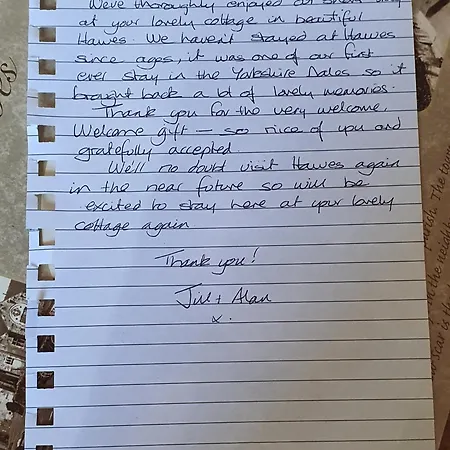 We've thoroughly enjoyed our short stay
at your lovely cottage in beautiful
Hawes. We haven't stayed at Hawes
since ages, it was one of our first
ever stay in the Yorkshire Dales so it
brought back a lot of lovely memories.
Thank you for the very welcome,
Welcome gift – soo nice of you and
gratefully accepted.
We'll no doubt visit Hawes again
in the near future so will be
excited to stay here at your lovely
cottage again
Thank you!
Jill + Alan
x.